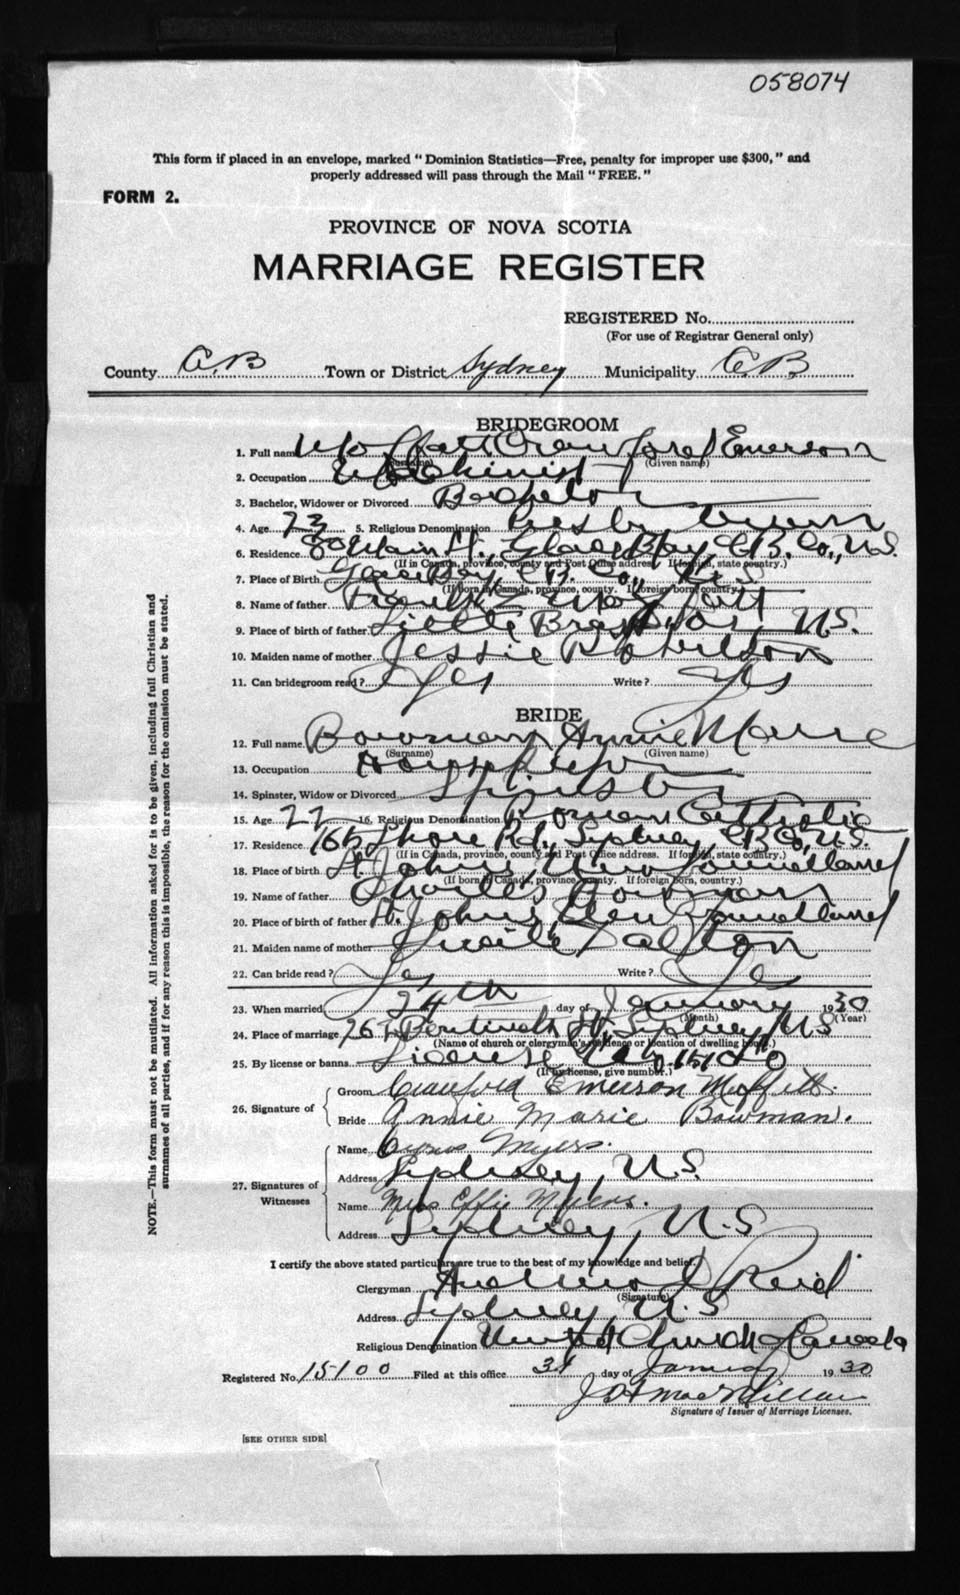 058074
This form if placed in an envelope, marked "Dominion Statistics—Free, penalty for improper use $300," and
properly addressed will pass through the Mail "FREE."
FORM 2.
PROVINCE OF NOVA SCOTIA
MARRIAGE REGISTER
REGISTERED No.
(For use of Registrar General only)
County C.B Town or District Sydney Municipality C.B.
BRIDEGROOM
1. Full name Moffatt Crawford Emerson
(Surname) (Given name)
2. Occupation Machinist
3. Bachelor, Widower or Divorced Bachelor
4. Age 23 5. Religious Denomination Presbyterian
6. Residence 80 Main St., Glace Bay, C.B. Co., N.S.
(If in Canada, province, county and Post Office address. If foreign, state country.)
7. Place of Birth Glace Bay, C.B. Co., N.S
(If born in Canada, province, county. If foreign born, country.)
8. Name of father Frank Moffatt
9. Place of birth of father Little Bras d'Or N.S.
10. Maiden name of mother Jessie Robertson
11. Can bridegroom read? Yes Write? Yes
BRIDE
12. Full name Bowman Annie Marie
(Surname) (Given name)
13. Occupation Housekeeper
14. Spinster, Widow or Divorced Spinster
15. Age 22 16. Religious Denomination Roman Catholic
17. Residence 165 Shore Rd., Sydney, C.B. Co., N.S.
(If in Canada, province, county and Post Office address. If foreign, state country.)
18. Place of birth St. Johns, New Foundland
(If born in Canada, province, county. If foreign born, country.)
19. Name of father Charles Bowman
20. Place of birth of father St. Johns New Foundland
21. Maiden name of mother Dalton
22. Can bride read? Yes Write? Yes
23. When married 24th day of January 1930
(Month) (Year)
24. Place of marriage St, Sydney, N.S
(Name of church or clergyman's residence or location of dwelling house.)
25. By license or banns License No. 15100
(If by license, give number.)
26. Signature of
Groom Crawford Emerson Moffatt.
Bride Annie Marie Bowman.
27. Signatures of Witnesses
Name Cyrus Myers.
Address Sydney, N.S.
Name Mrs Effie Myers.
Address Sydney, N.S
I certify the above stated particulars are true to the best of my knowledge and belief.
Clergyman Reid
(Signature)
Address Sydney, N.S
Religious Denomination United Church of Canada
Registered No. 15100 Filed at this office 31 day of January 1930
J A MacMillan
Signature of Issuer of Marriage Licenses.
[SEE OTHER SIDE]
NOTE.—This form must not be mutilated. All information asked for is to be given, including full Christian and
surnames of all parties, and if for any reason this is impossible, the reason for the omission must be stated.